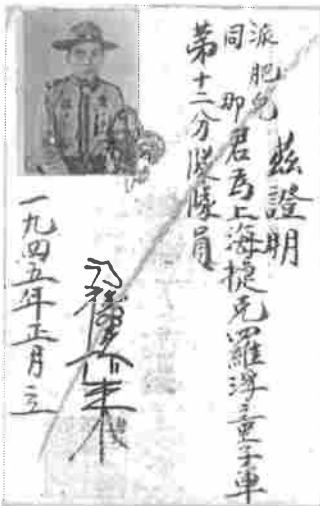 茲證明
派肥兒
同那君為上海捷克羅浮童子軍
第十二分隊隊員
一九四五年正月立